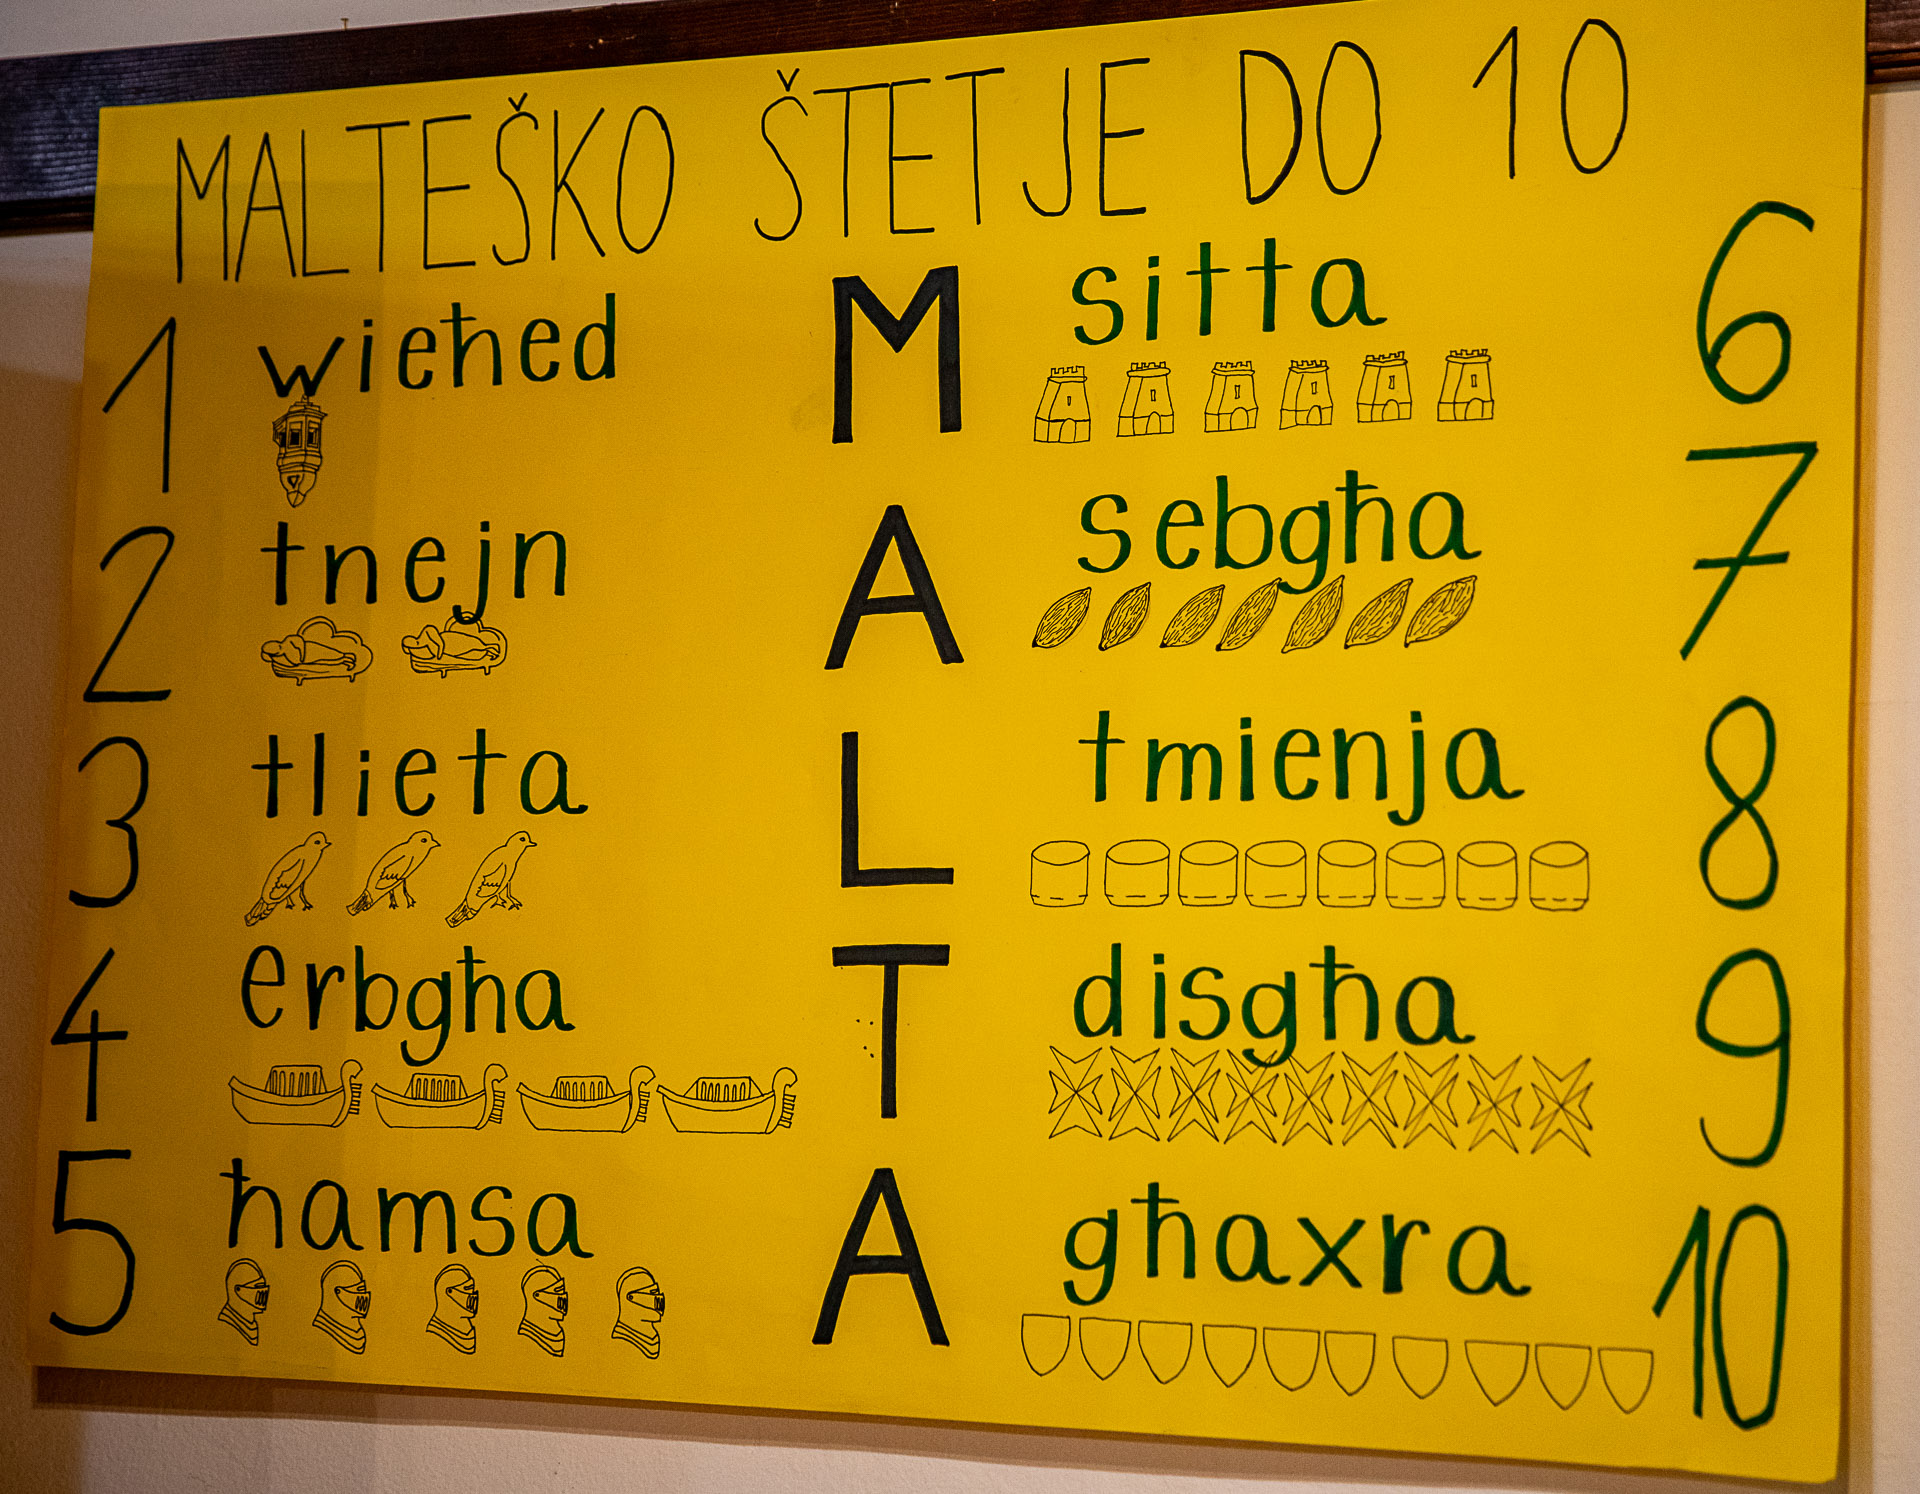 MALTEŠKO ŠTETJE DO 10
1 wieħed
2 tnejn
3 tlieta
4 erbgħa
5 ħamsa
M
A
L
T
A
sitta 6
sebgħa 7
tmienja 8
disgħa 9
għaxra 10